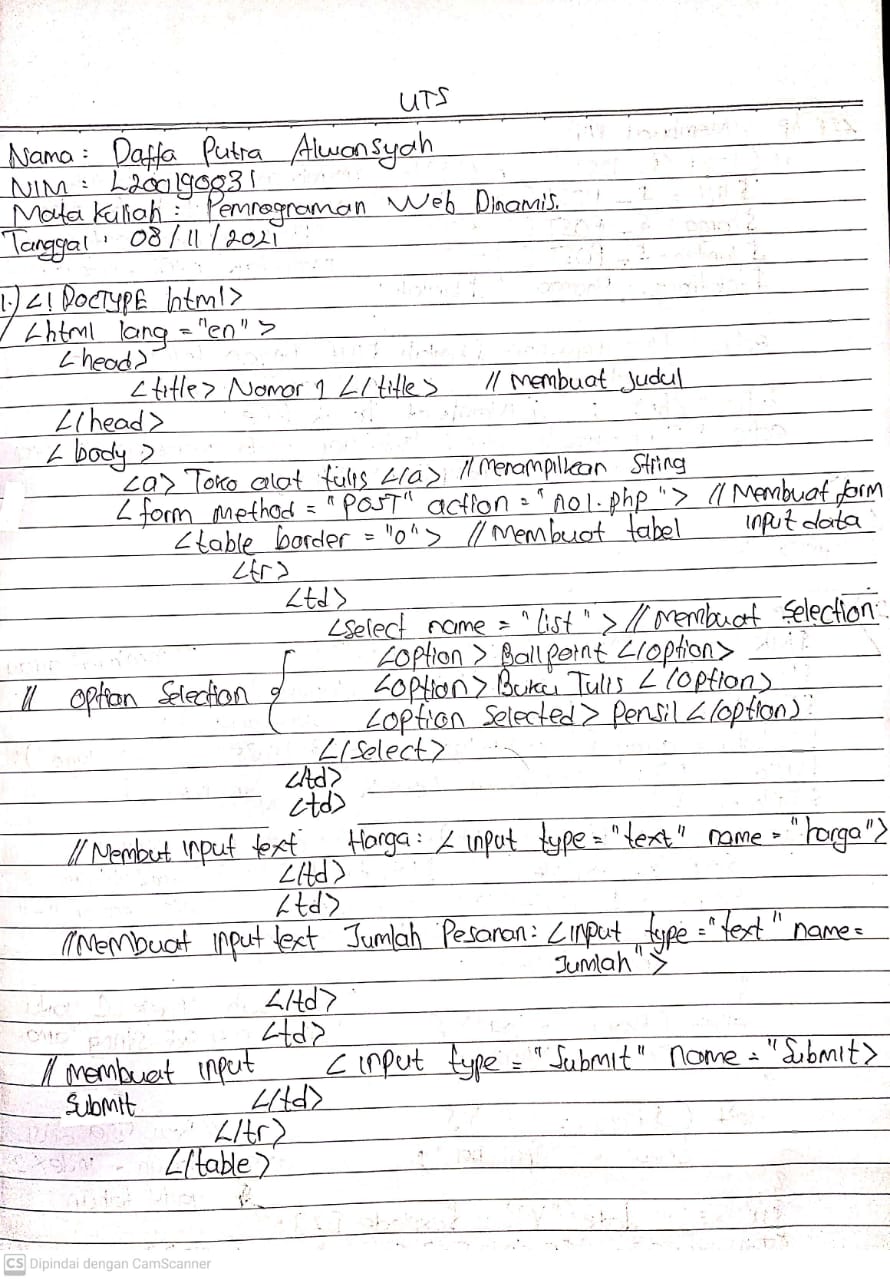 UTS
Nama : Daffa Putra Alwansyah
NIM : L200190031
Mata Kuliah : Pemrograman Web Dinamis.
Tanggal : 08/11/2021
1.) <! DOCTYPE html>
<html lang = "en" >
<head>
<title> Nomor 1 </title> // Membuat Judul
</head>
<body >
<a> Toko alat tulis </a> // Menampilkan String
<form method = "POST" action = "no1.php "> // Membuat form
input data
<table border = "0"> // Membuat tabel
<tr>
<td>
<select name = "list" > // Membuat Selection
<option > Ballpoint </option>
// Option Selection { <option> Buku Tulis </option>
<option Selected> Pensil </option>
</select>
</td>
<td>
// Membut input text Harga: < input type = "text" name = "harga">
</td>
<td>
// Membuat input text Jumlah Pesanan: <input type = "text" name =
Jumlah">
</td>
<td>
// Membuat input < input type = "Submit" name = "Submit>
Submit </td>
</tr>
</table>
CS Dipindai dengan CamScanner